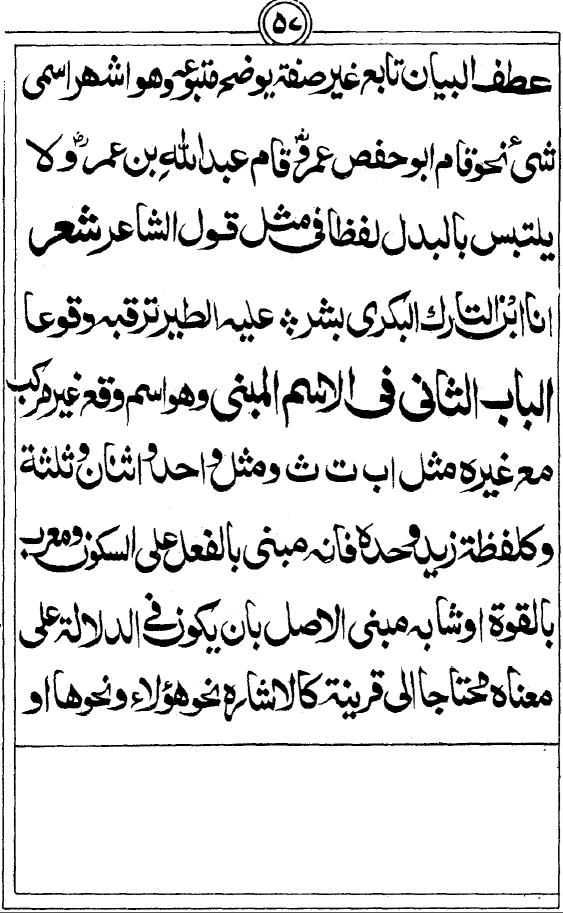 ۵۷
عطف البيان تابع غير صفة يوضح متبوعه وهو اشهر اسمى
شئ نحو قام ابو حفص عمر وقام عبد اللهِ بن عمر ولا
يلتبس بالبدل لفظا فى مثل قول الشاعر شعر
انا ابْنُ التارك البكرى بشر ؞ عليه الطير ترقبه وقوعا
الباب الثانى فى الاسم المبنى وهو اسم وقع غير مركب
مع غيره مثل ا ب ت ث ومثل واحد و اثنان و ثلثة
وكلفظة زيد وحده فانه مبنى بالفعل على السكون ومعرب
بالقوة او شابه مبنى الاصل بان يكون فى الدلالة على
معناه محتاجا الى قرينة كالاشارة نحو هؤلاء ونحوها او